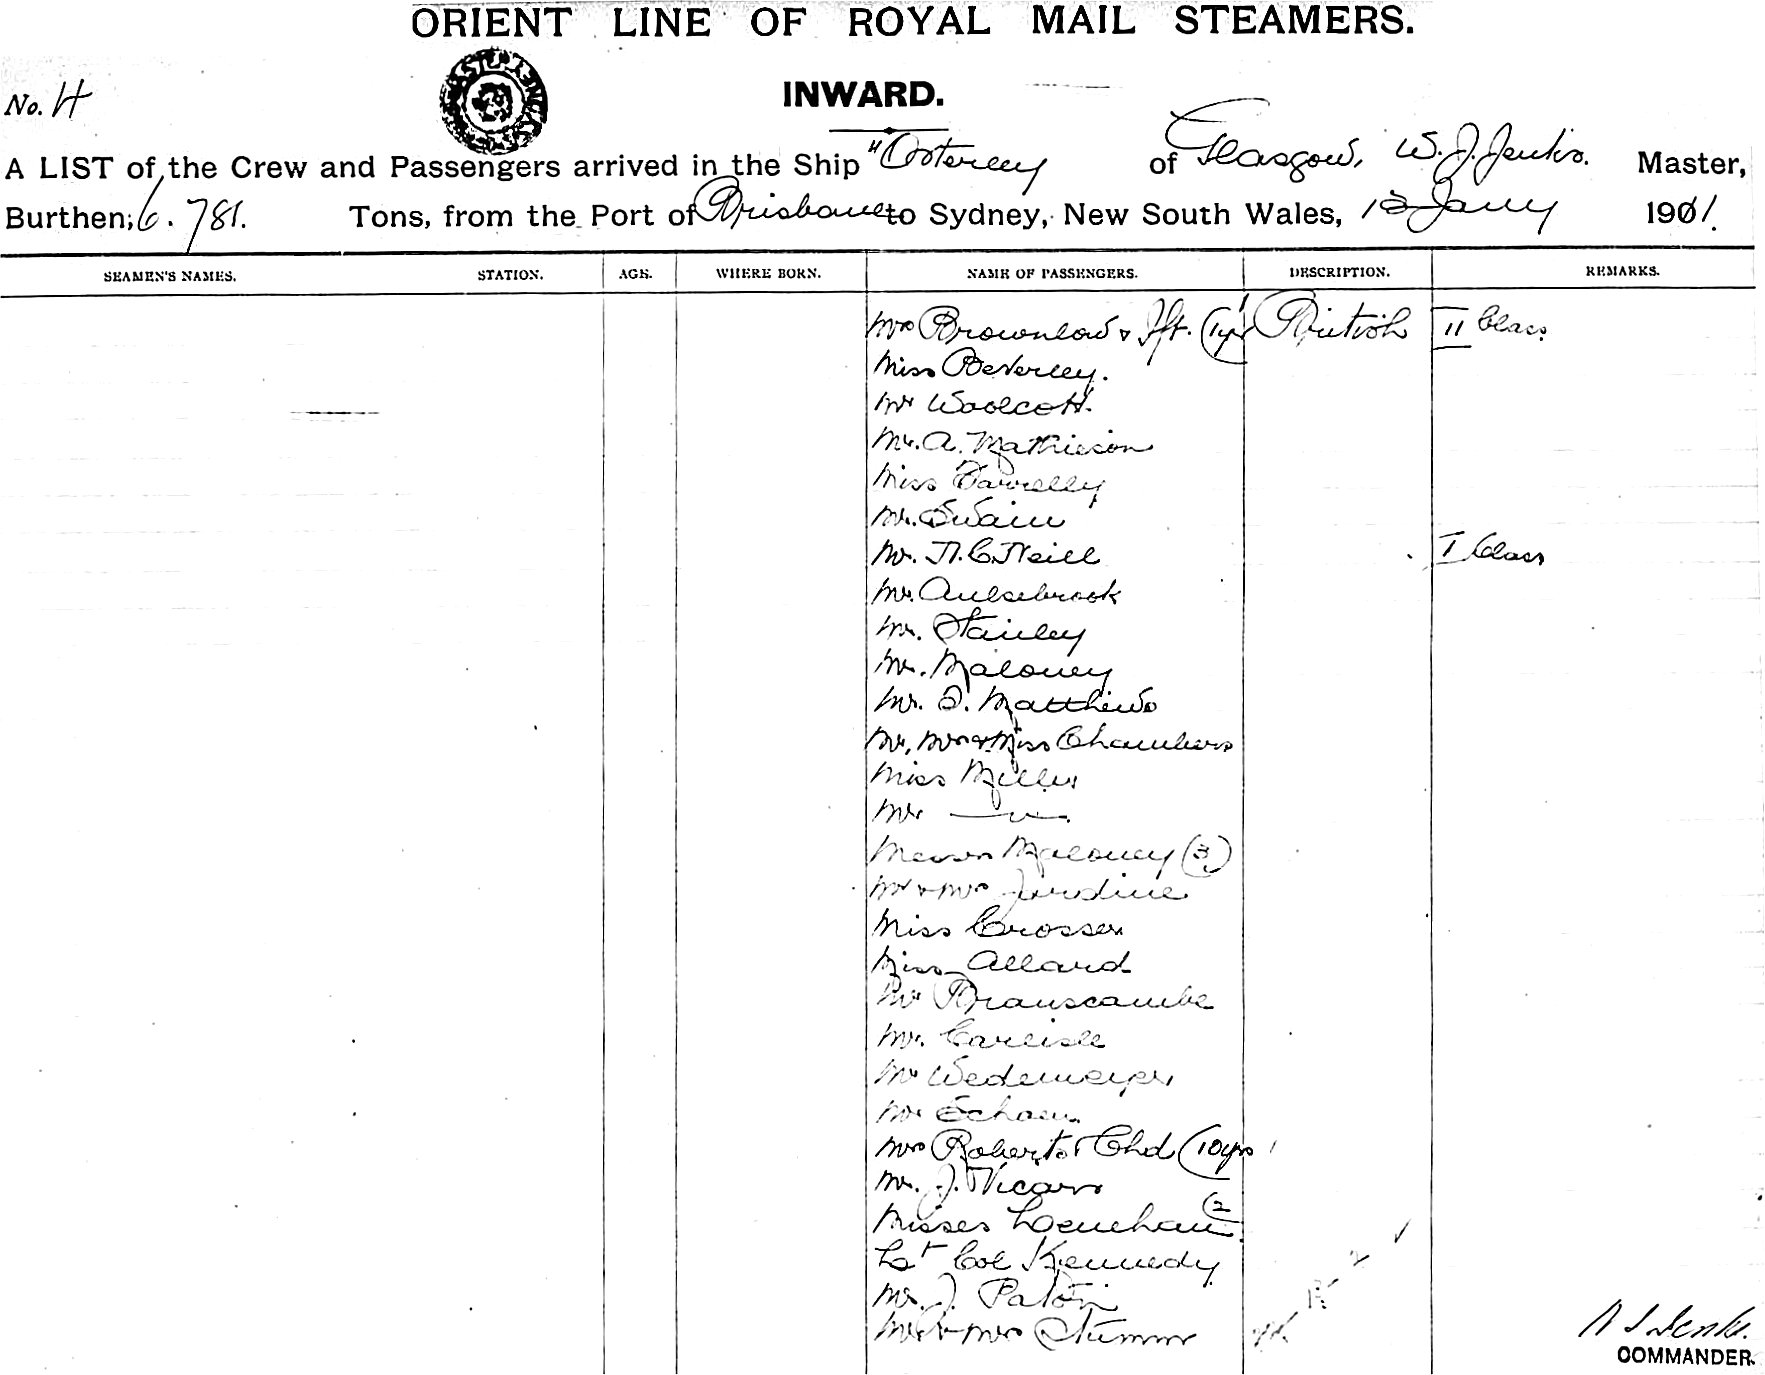 ORIENT LINE OF ROYAL MAIL STEAMERS.
No. H
INWARD.
A LIST of the Crew and Passengers arrived in the Ship "Osterley of Glasgow, W. J. Jenks. Master,
Burthen, 6.781. Tons, from the Port of Brisbane to Sydney, New South Wales, 13 Jany 1901.
SEAMEN'S NAMES. STATION. AGE. WHERE BORN. NAME OF PASSENGERS. DESCRIPTION. REMARKS.
Mrs Brownlow & Jft. (1yr British II Class
Miss Beverley.
Mr Woolcott.
Mr. A. Mathieson
Miss Farrelly
Mr. Swain
Mr. N. C. Neill I Class
Mr. Aulsebrook
Mr. Stanley
Mr. Maloney
Mr. D. Matthews
Mr, Mrs & Miss Chambers
Miss Miller
Mr
Messrs Maloney (3)
Mr & Mrs Jardine
Miss Crosser
Miss Allard
Mr Branscombe
Mr. Carlisle
Mr Wedemeyer
Mr Schaen
Mrs Roberts & Chd (10yrs
Mr. J. Vicars
Misses Lenehan (2
Lt Col Kennedy
Mr. J. Paton
Mr & Mrs Stumm
COMMANDER.